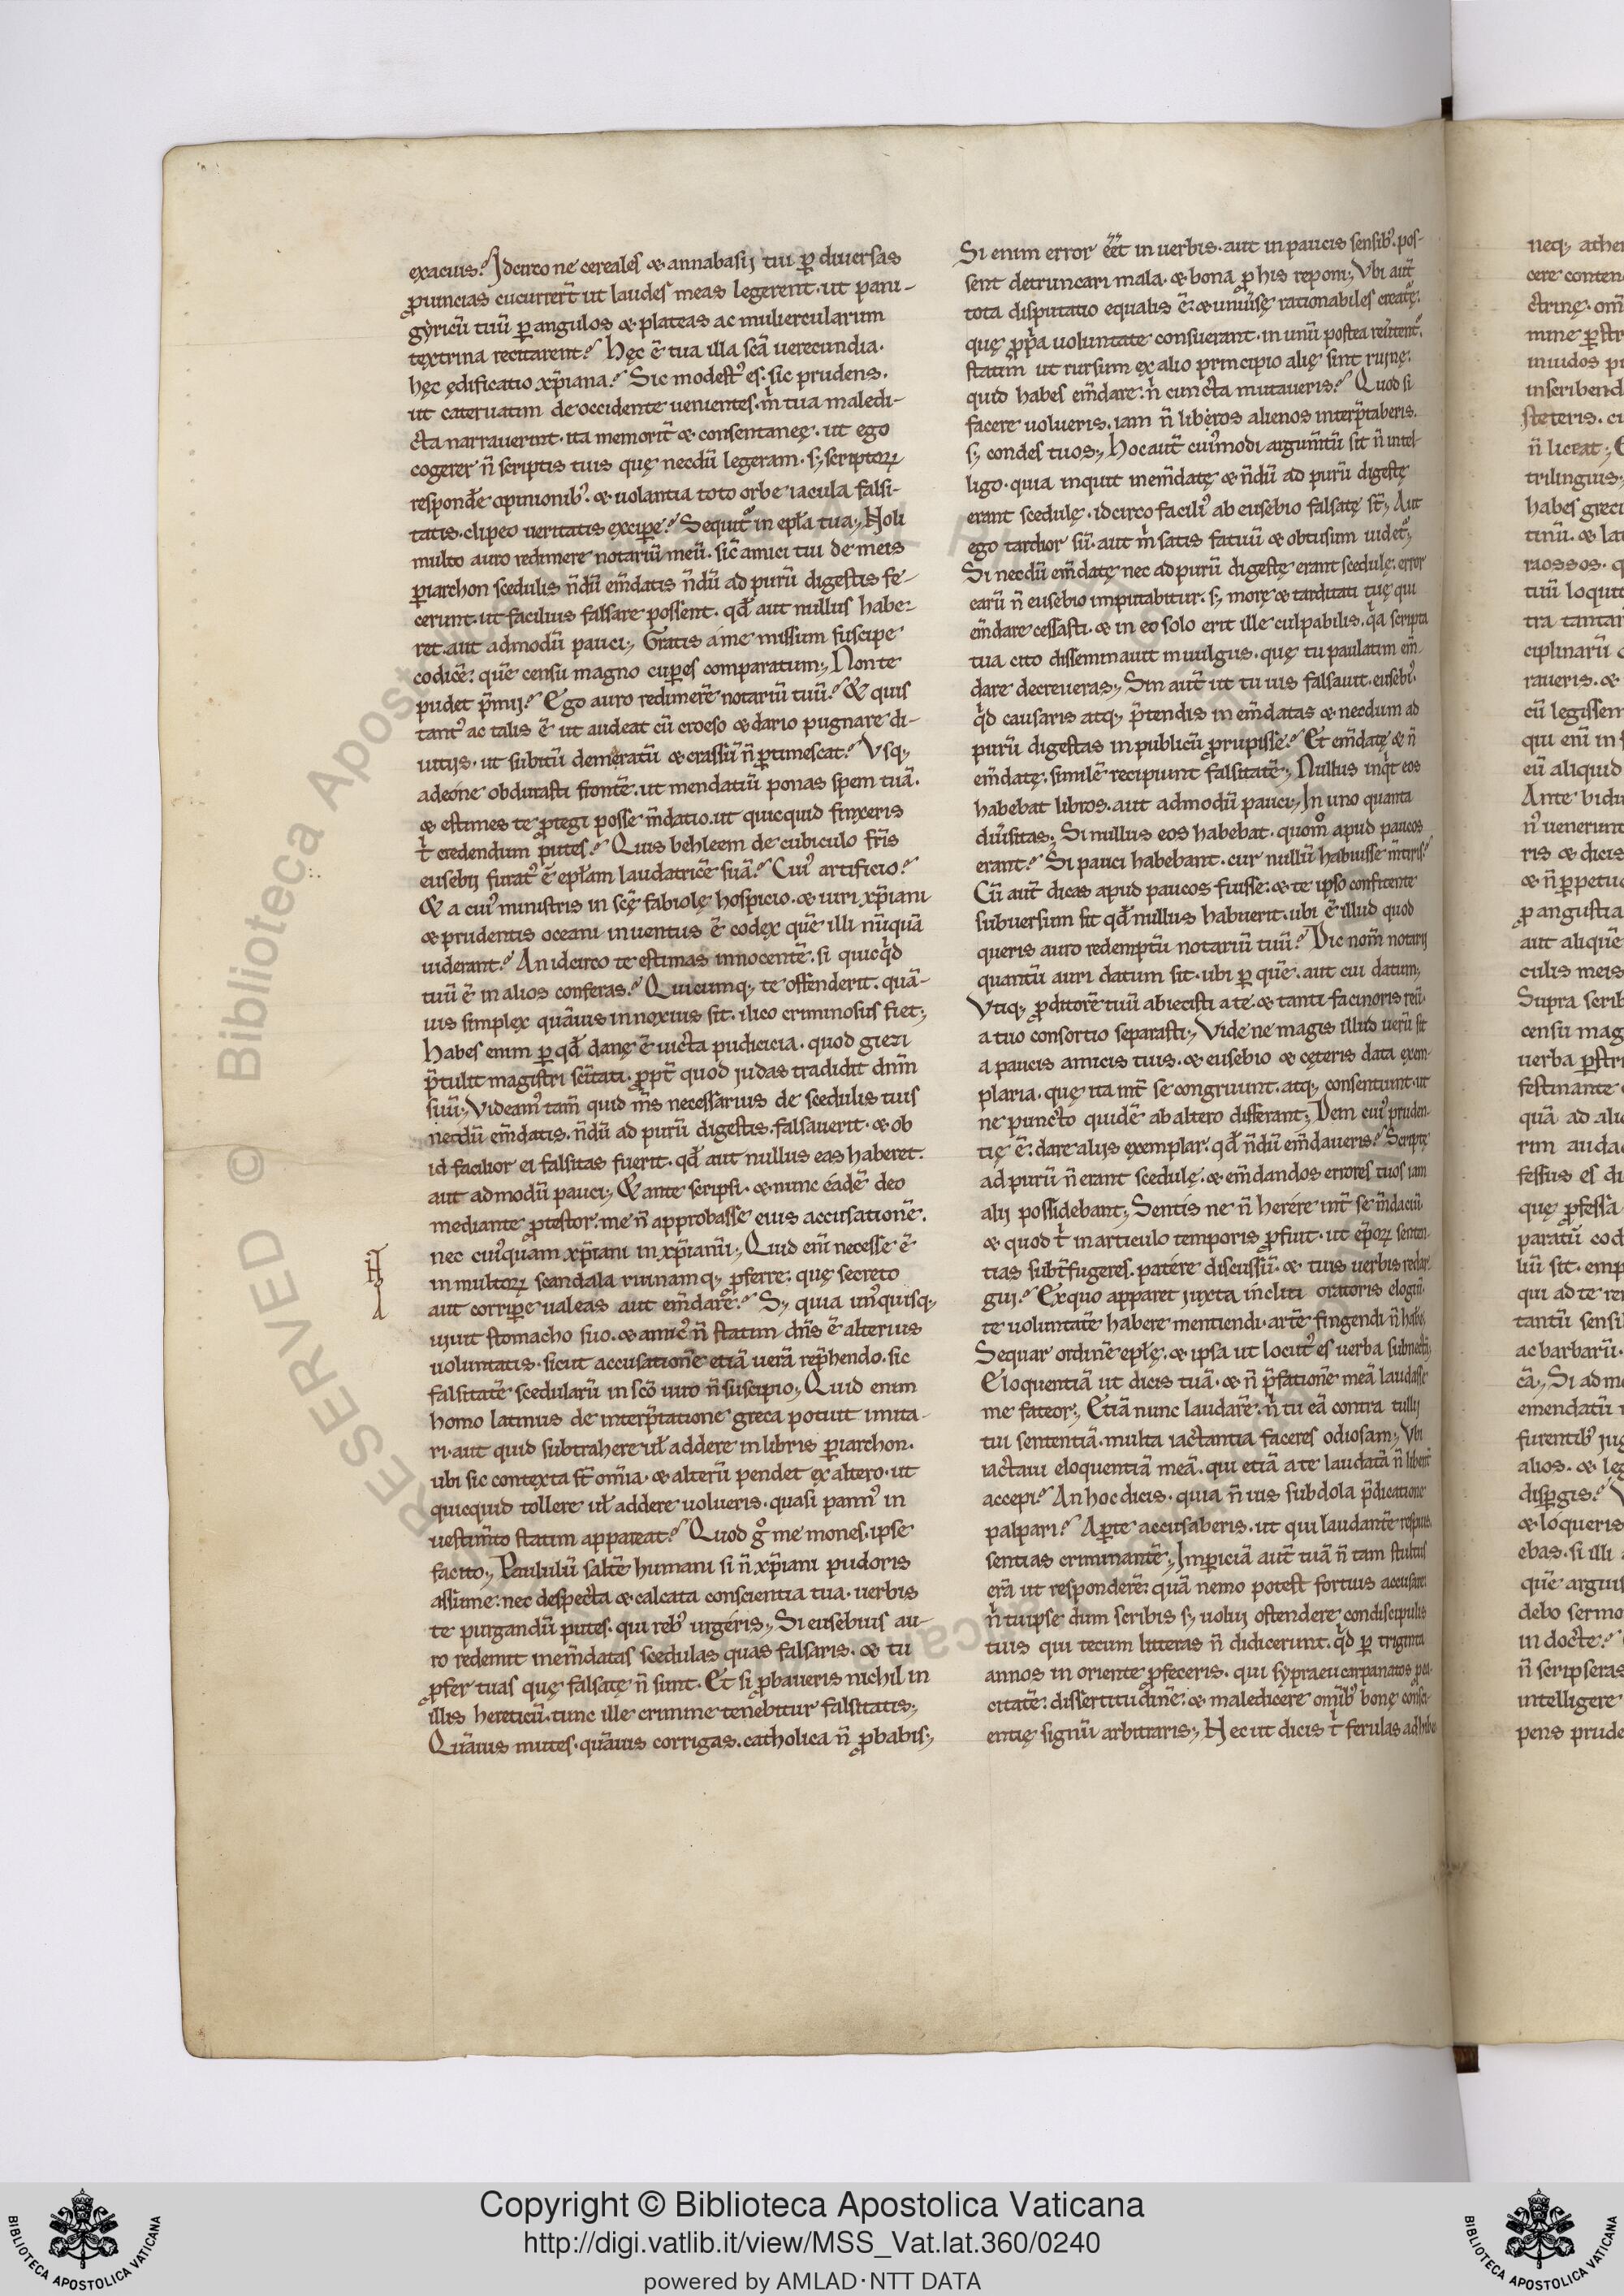 exacuis? Idcirco ne cereales & annabasij tui p̱ diuersas
ꝓuincias cucurrer̄t ut laudes meas legerent. ut pani-
gyricū tuū p̱ angulos & plateas ac muliercularum
textrina recitarent? Hęc ē tua illa scā uerecundia.
hęc ędificatio xp̄iana? Sic modestꝰ es. sic prudens.
ut cateruatim de occidente uenientes. m̄ tua maledi-
cta narrauerint. ita memorit̄ & consentanee. ut ego
cogerer n̄ scriptis tuis quę necdū legeram. s; scriptoꝝ
respondēe opinionibꝰ. & uolantia toto orbe iacula falsi-
tatis. clipeo ueritatis excipe? Sequit᷑ in epła tua; Noli
multo auro redimere notariū meū. sic̄ amici tui de meis
p̱iarchon scedulis n̄dū em̄datis n̄dū ad purū digestis fe-
cerunt. ut facilius falsare possent. qd̄ aut nullus habe-
ret. aut admodū pauci; Gratis a me missum suscipe
codicē: quē censu magno cup̱es comparatum; Non te
pudet p̄mij? Ego auro redimerē notariū tuū? & quis
tantꝰ ac talis ē ut audeat cū croeso & dario pugnare di-
uitijs. ut subitū demeratū & crassū n̄ p̱timescat? Vsq;
adeone obdurasti frontē. ut mendatiū ponas spem tuā.
& estimes te ꝓtegi posse m̄datio. ut quicquid finxeris
t̄ credendum putes? Quis behleem de cubiculo fr̄is
eusebij furatꝰ ē epłam laudatricē suā? Cuiꝰ artificio?
& a cuiꝰ ministris in scę fabiolę hospicio. & uiri xp̄iani
& prudentis oceani inuentus ē codex quē illi nūquā
uiderant? An idcirco te estimas innocentē. si quicqd̄
tuū ē in alios conferas? Quicumq; te offenderit. quā-
uis simplex quāuis innoxius sit. ilico criminosus fiet;
Habes enim p̱ qd̄ danę ē uicta pudicicia. quod giezi
p̄tulit magistri scītati. ꝓpt̄ quod iudas tradidit dn̄m
suū; Videamꝰ tam̄ quid m̄s necessarius de scedulis tuis
necdū em̄datis. n̄dū ad purū digestis. falsauerit. & ob
id facilior ei falsitas fuerit. qd̄ aut nullus eas haberet.
aut admodū pauci; & ante scripsi. & nunc eadē deo
mediante ꝓtestor. me n̄ approbasse eius accusationē.
nec cuiꝰquam xp̄iani in xp̄ianū; Quid eni̅ necesse ē
in multoꝝ scandala ruinamq; ꝓferre: quę secreto
aut corrip̱e ualeas aut em̄dare? S; quia unꝰquisq;
uiuit stomacho suo. & amicꝰ n̄ statim dn̄s ē alterius
uoluntatis. sicut accusationē etiā uerā rep̄hendo. sic
falsitatē scedularū in scō uiro n̄ suscipio; Quid enim
homo latinus de interp̄tatione greca potuit muta-
ri. aut quid subtrahere uł addere in libris p̱iarchon.
ubi sic contexta st̄ om̄ia. & alterū pendet ex altero. ut
quicquid tollere uł addere uolueris. quasi pannꝰ in
uestim̄to statim appareat? Quod gͦ me mones. ipse
facito; Paululū saltē humani si n̄ xp̄iani pudoris
assume: nec despecta & calcata conscientia tua. uerbis
te purgandū putes. qui rebꝰ urgeris; Si eusebius au-
ro redemit inem̄datas scedulas quas falsaris. & tu
ꝓfer tuas quę falsatę n̄ sunt. Et si ꝓbaueris nichil in
illis hereticū. tunc ille crimine tenebitur falsitatis;
Quāuis mutes. quāuis corrigas. catholica n̄ ꝓbabis;
Si enim error ēet̄ in uerbis. aut in paucis sensibꝰ. pos-
sent detruncari mala. & bona ꝓ his reponi; Vbi aut̄
tota disputatio equalis ē. & uniuīsę rationabiles creatę.
quę ꝓp̄a uoluntate consuerant. in unū postea reūtent᷑.
statim ut rursum ex alio principio alię sint ruinę:
quid habes em̄dare. n̄ cuncta mutaueris? Quod si
facere uolueris. iam n̄ liberos alienos interp̄taberis.
s; condes tuos; Hoc aut̄ cuiꝰmodi argum̄tū sit n̄ intel-
ligo. quia inquit inem̄datę & n̄dū ad purū digestę
erant scedulę. idcirco faciliꝰ ab eusebio falsatę st̄; Aut
ego tardior sū. aut m̄ satis fatuū & obtusum uidet᷑;
Si necdū em̄datę nec ad purū digestę erant scedulę: error
earū n̄ eusebio imputabitur. s; morę & tarditati tuę qui
em̄dare cessasti. & in eo solo erit ille culpabilis. qa scripta
tua cito disseminauit in uulgus. quę tu paulatim em̄-
dare decreueras; Sin aut̄ ut tu uis falsauit. eusebiꝰ.
qd̄ causaris atq; p̄tendis inem̄datas & necdum ad
purū digestas in publicū ꝓrupisse? Et em̄datę & n̄
em̄datę. similē recipiunt falsitatē; Nullus inqt̄ eos
habebat libros. aut admodū pauci; In uno quanta
diūsitas; Si nullus eos habebat. quom̊ apud paucos
erant? Si pauci habebant. cur nullū habuisse m̄tiris?
Cū aut̄ dicas apud paucos fuisse: & te ipso confitente
subuersum sit qd̄ nullus habuerit. ubi ē illud quod
queris auro redemptū notariū tuū? Dic nom̄ notarij
quantū auri datum sit. ubi p̱ quē. aut cui datum;
Vtiq; ꝓditorē tuū abiecisti a te. & tanti facinoris reū.
a tuo consortio separasti; Vide ne magis illud uerū sit
a paucis amicis tuis. & eusebio & cęteris data exem-
plaria. quę ita int̄ se congruunt. atq; consentiunt. ut
ne puncto quidē ab altero differant; Dem cuiꝰ pruden-
tię ē. dare alijs exemplar. qd̄ n̄dū em̄daueris? Scriptę
ad purū n̄ erant scedulę. & em̄dandos errores tuos iam
alij possidebant; Sentis ne n̄ herere int̄ se m̄daciū.
& quod t̄ in articulo temporis ꝓfuit. ut ep̄oꝝ senten-
tias subt̄fugeres. patere discussū. & tuis uerbis redar-
gui? Ex quo apparet iuxta incliti oratoris elogiū.
te uoluntatē habere mentiendi. artē fingendi n̄ habe;
Sequar ordinē epłę. & ipsa ut locutꝰ es uerba subnectā;
Eloquentiā ut dicis tuā. & n̄ p̄fationē meā laudasse
me fateor; Etiā nunc laudarē. n̄ tu eā contra tullij
tui sententiā. multa iactantia faceres odiosam; Vbi
iactaui eloquentiā meā. qui etiā a te laudatā n̄ libent̄
accepi? An hoc dicis. quia n̄ uis subdola p̄dicatione
palpari? Ap̱te accusaberis. ut qui laudantē respuis.
sentias criminantē; Imp̱iciā aut̄ tuā n̄ tam stultus
erā ut responderē: quā nemo potest fortius accusare:
n̄ tu ipse dum scribis s; uolui ostendere condiscipulis
tuis qui tecum litteras n̄ didicerunt. qd̄ p̱ triginta
annos in oriente ꝓfeceris. qui
citatē: dissertitudinē: & maledicere om̄ibꝰ bonę consci-
entię signū arbitraris; Hec ut dicis t̄ ferulas adhibe
neq; athe
cere conten
ctrinę. om̄
mine p̱str
inuidos pr
inscribend
steteris. cu
n̄ liceat;
trilinguis.
habes greci
tinū. & lat
raossos. q
tuū loquit
tra tantar
ciplinarū
raueris. &
cū legissem
qui enī in
eū aliquid
Ante bidu
nꝰ uenerunt
ris & dicis
& n̄ p̱petuo
ꝓ angustia
aut aliquē
culis meis
Supra scrib
censu mag
uerba p̱stri
festinante
quā ad alio
rim audac
fessus es di
que ꝓfessa
paratū cod
liū sit. emp
qui ad te re
tantū sensi
ac barbarū.
cā; Si ad me
emendatū
furentibꝰ iug
alios. & leg
disp̱gis?
& loqueris
ebas. si illi
quē arguis
debo sermo
in docte?
n̄ scripseras
intelligere
pens prude
RESERVED © Biblioteca Apostolica Vaticana
Copyright © Biblioteca Apostolica Vaticana
http://digi.vatlib.it/view/MSS_Vat.lat.360/0240
powered by AMLAD·NTT DATA
BIBLIOTECA APOSTOLICA VATICANA
BIBLIOTECA APOSTOLICA VATICANA